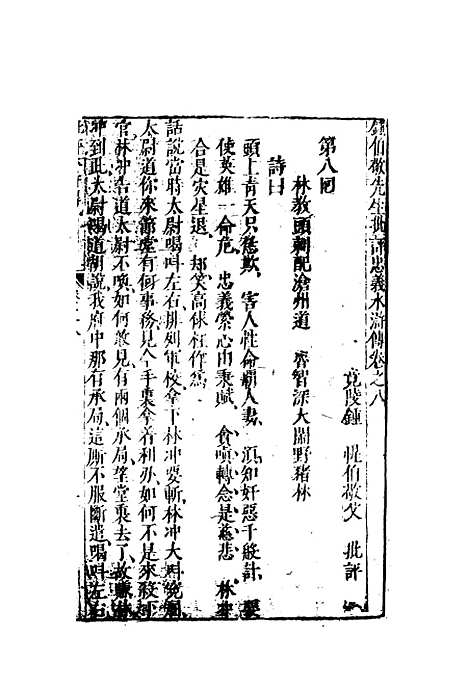 鍾伯敬先生批評忠義水滸傳卷之八
竟陵鍾惺伯敬父批評
第八回
林教頭刺配滄州道 魯智深大鬧野豬林
詩曰
頭上青天只恁欺 害人性命霸人妻 須知奸惡千般計 要
使英雄一命危 忠義縈心由秉賦 貪嗔轉念是慈悲 林冲
合是災星退 却笑高俅枉作為
話說當時太尉喝叫左右排列軍校拿下林冲要斬林冲大叫冤屈
太尉道你來節堂有何事務見今手裏拿着利刃如何不是來殺下
官林冲告道太尉不喚如何敢見有兩個承局望堂裏去了故賺林
冲到此太尉喝道胡說我府中那有承局這厮不服斷遣喝叫左右